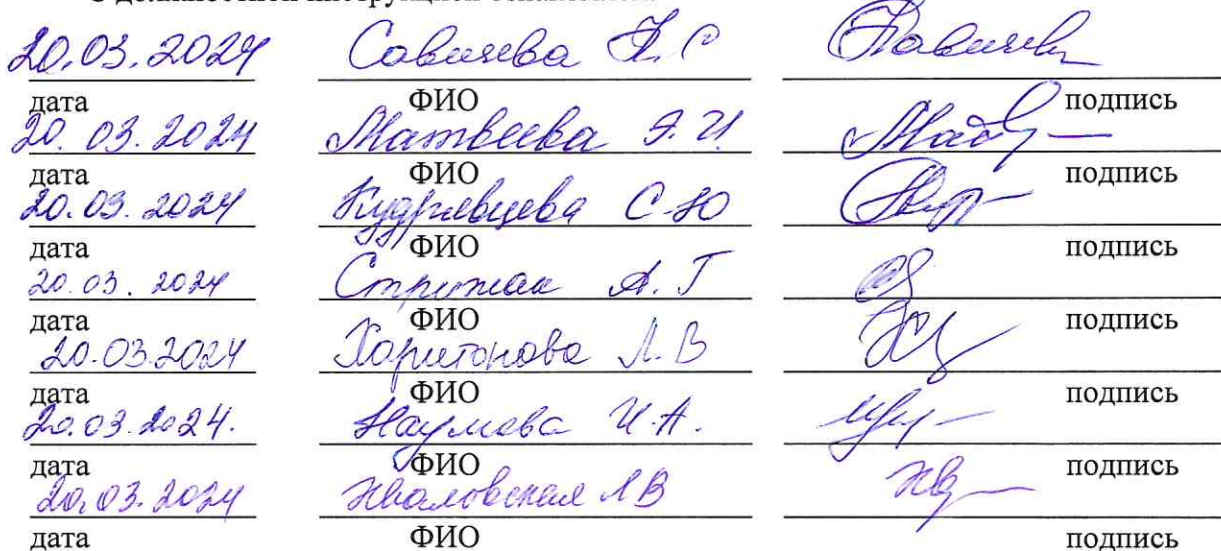 С должностной инструкцией ознакомлен:
20.03.2024 Савичева Н.С
дата ФИО подпись
20.03.2024 Матвеева Э.И.
дата ФИО подпись
20.03.2024 Кудрявцева С.Ю
дата ФИО подпись
20.03.2024 Стрижак А.Г
дата ФИО подпись
20.03.2024 Харитонова Л.В
дата ФИО подпись
20.03.2024. Наумова И.А.
дата ФИО подпись
20.03.2024 ЛВ
дата ФИО подпись